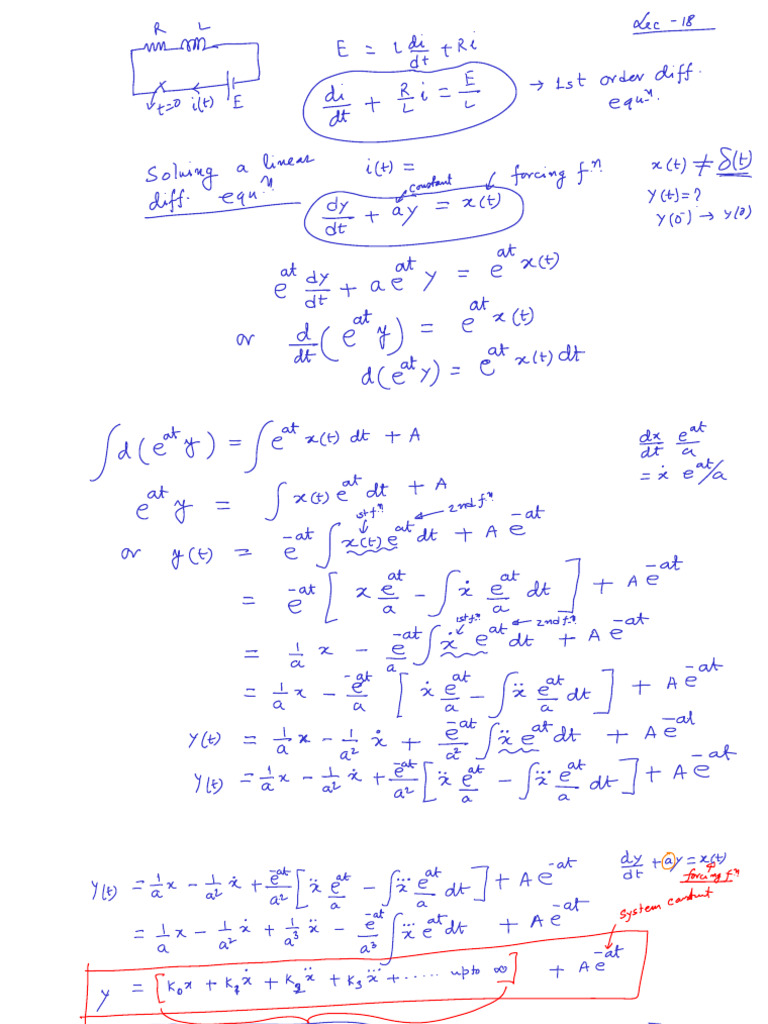 Lec - 18
R L
t=0 i(t) E
E = L di/dt + Ri
di/dt + R/L i = E/L → 1st order diff. equⁿ.
Solving a linear diff. equⁿ
i(t) =
constant
forcing fⁿ
dy/dt + ay = x(t)
x(t) ≠ δ(t)
y(t) = ?
y(0⁻) → y(0)
e^{at} dy/dt + a e^{at} y = e^{at} x(t)
or d/dt (e^{at} y) = e^{at} x(t)
d(e^{at} y) = e^{at} x(t) dt
∫ d(e^{at} y) = ∫ e^{at} x(t) dt + A
dx/dt e^{at}/a
= ẋ e^{at}/a
e^{at} y = ∫ x(t) e^{at} dt + A
1st fⁿ 2nd fⁿ
or y(t) = e^{-at} ∫ x(t) e^{at} dt + A e^{-at}
= e^{-at} [ x e^{at}/a - ∫ ẋ e^{at}/a dt ] + A e^{-at}
1st fⁿ 2nd fⁿ
= 1/a x - e^{-at}/a ∫ ẋ e^{at} dt + A e^{-at}
= 1/a x - e^{-at}/a [ ẋ e^{at}/a - ∫ ẍ e^{at}/a dt ] + A e^{-at}
y(t) = 1/a x - 1/a² ẋ + e^{-at}/a² ∫ ẍ e^{at} dt + A e^{-at}
y(t) = 1/a x - 1/a² ẋ + e^{-at}/a² [ ẍ e^{at}/a - ∫ x⃛ e^{at}/a dt ] + A e^{-at}
y(t) = 1/a x - 1/a² ẋ + e^{-at}/a² [ ẍ e^{at}/a - ∫ x⃛ e^{at}/a dt ] + A e^{-at}
dy/dt + ay = x(t)
forcing fⁿ
= 1/a x - 1/a² ẋ + 1/a³ ẍ - e^{-at}/a³ ∫ x⃛ e^{at} dt + A e^{-at}
system constant
y = [ K₀x + K₁ẋ + K₂ẍ + K₃x⃛ + ..... upto ∞ ] + A e^{-at}